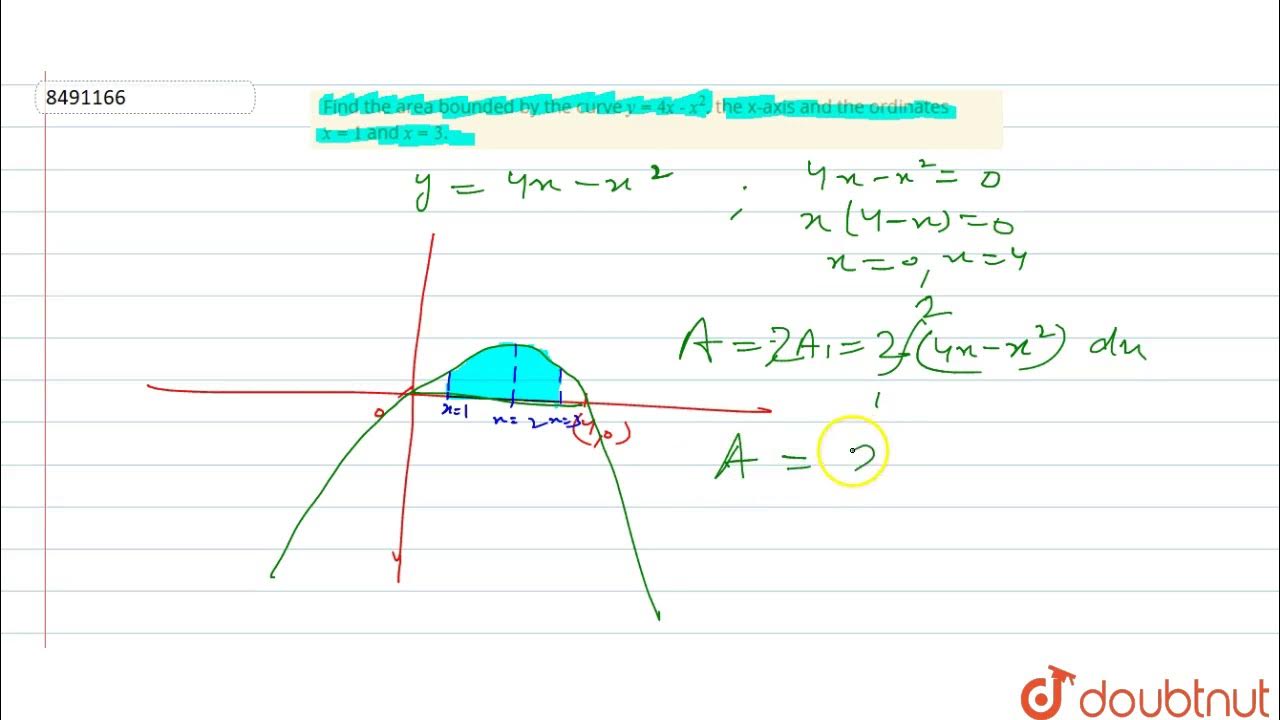 8491166
Find the area bounded by the curve y = 4x - x², the x-axis and the ordinates
x = 1 and x = 3.
y = 4x - x² ; 4x - x² = 0
x(4-x) = 0
x = 0, x = 4
A = 2A₁ = 2∫₁² (4x - x²) dx
x=1
x= 2
x=3
0
(4,0)
A = 2
y
doubtnut